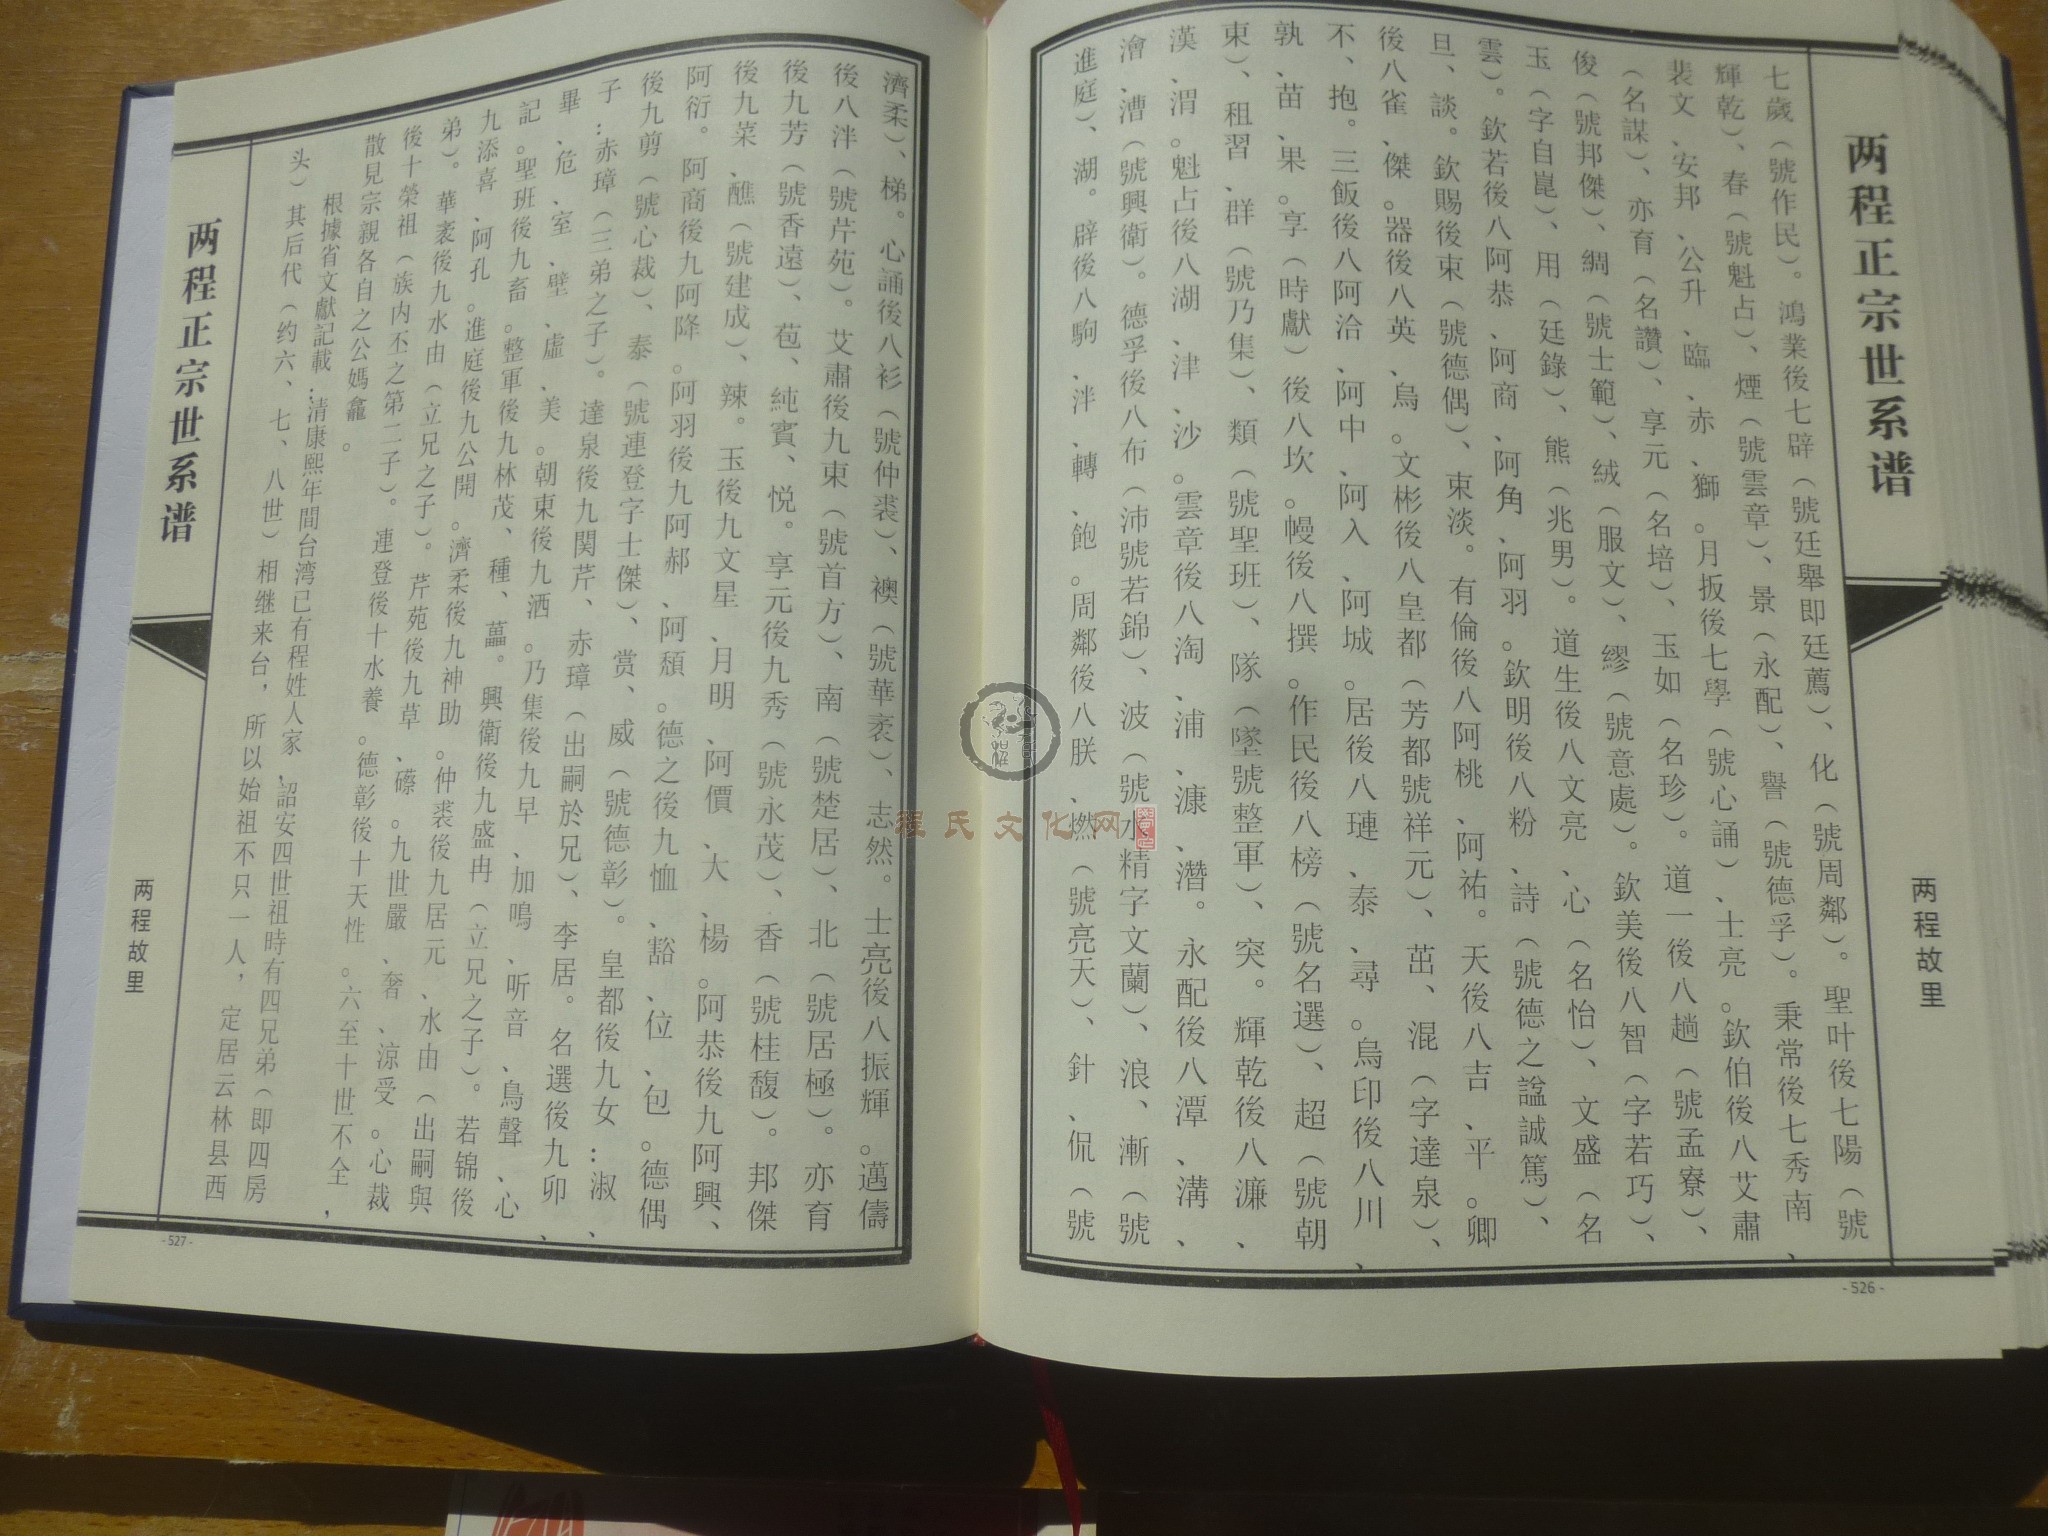 两程正宗世系谱
两程故里
- 526 -
七歲（號作民）。鴻業後七辟（號廷舉即廷薦）、化（號周鄰）。聖叶後七陽（號
輝乾）、春（號魁占）、煙（號雲章）、景（永配）、譽（號德孚）。秉常後七秀南、
裴文、安邦、公升、臨、赤、獅。月扳後七學（號心誦）、士亮。欽伯後八艾肅
（名謀）、亦育（名讚）、享元（名培）、玉如（名珍）。道一後八趟（號孟寮）、
俊（號邦傑）、綢（號士範）、絨（服文）、繆（號意處）。欽美後八智（字若巧）、
玉（字自崑）、用（廷錄）、熊（兆男）。道生後八文亮、心（名怡）、文盛（名
雲）。欽若後八阿恭、阿商、阿角、阿羽。欽明後八粉、詩（號德之諡誠篤）、
旦、談。欽賜後束（號德偶）、束淡。有倫後八阿桃、阿祐。天後八吉、平。卿
後八雀、傑。器後八英、烏。文彬後八皇都（芳都號祥元）、茁、混（字達泉）、
不、抱。三飯後八阿洽、阿中、阿入、阿城。居後八璉、泰、尋。烏印後八川、
孰、苗、果。享（時獻）後八坎。幔後八撰。作民後八榜（號名選）、超（號朝
東）、租習、群（號乃集）、類（號聖班）、隊（墜號整軍）、突。輝乾後八濂、
漢、渭。魁占後八湖、津、沙。雲章後八淘、浦、漮、潛。永配後八潭、溝、
澮、漕（號興衛）。德孚後八布（沛號若錦）、波（號水精字文蘭）、浪、漸（號
進庭）、湖。辟後八駒、泮、轉、飽。周鄰後八朕、燃（號亮天）、針、侃（號
濟柔）、梯。心誦後八衫（號仲裘）、襖（號華袤）、志然。士亮後八振輝。邁儔
後八泮（號芹苑）。艾肅後九東（號首方）、南（號楚居）、北（號居極）。亦育
後九芳（號香遠）、苞、純賓、悦。享元後九秀（號永茂）、香（號桂馥）。邦傑
後九菜、醮（號建成）、辣。玉後九文星、月明、阿價、大、楊。阿恭後九阿興、
阿衍。阿商後九阿降。阿羽後九阿郝、阿頹。德之後九恤、豁、位、包。德偶
後九剪（號心裁）、泰（號連登字士傑）、赏、威（號德彰）。皇都後九女：淑、
子：赤璋（三弟之子）。達泉後九関芹、赤璋（出嗣於兄）、李居。名選後九卯、
畢、危、室、壁、虛、美。朝東後九洒。乃集後九早、加鳴、听音、鳥聲、心
記。聖班後九畜。整軍後九林茂、種、藟。興衛後九盛冉（立兄之子）。若锦後
九添喜、阿孔。進庭後九公開。濟柔後九神助。仲裘後九居元、水由（出嗣與
弟）。華袤後九水由（立兄之子）。芹苑後九草、礤。九世嚴、奢、涼受。心裁
後十榮祖（族内丕之第二子）。連登後十水養。德彰後十天性。六至十世不全，
散見宗親各自之公媽龕。
根據省文獻記載：清康熙年間台湾已有程姓人家，詔安四世祖時有四兄弟（即四房
头）其后代（约六、七、八世）相继来台，所以始祖不只一人，定居云林县西
两程正宗世系谱
两程故里
- 527 -
程氏文化网